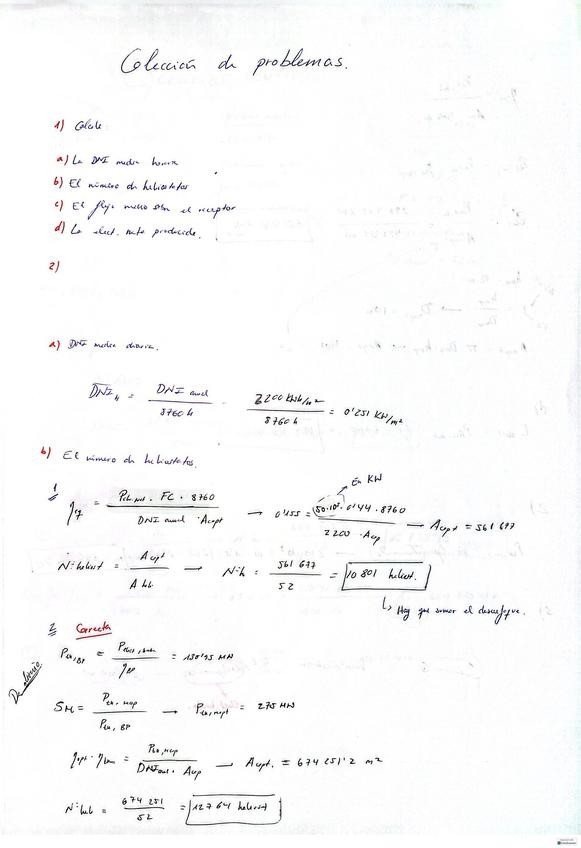 Colección de problemas.
1) Calcule
a) La DNI media horaria
b) El número de heliostatos
c) El flujo medio sobre el receptor
d) La elect. neta producida.
2)
a) DNI media diaria.
DNI h = DNI anual / 8760 h = 2200 KWh/m² / 8760 h = 0'251 KW/m²
b) El número de heliostatos.
En KW
1 = FC · 8760 / DNI anual · Acapt → 0'155 = 50·10³ · 0'44 · 8760 / 2200 · Acap → Acapt = 561 677
Nº heliost = A capt / A hel → Nº h = 561 677 / 52 = 10 801 heliost.
↳ Hay que sumar el desenfoque.
2 Correcta
De Antonio
Pth,BP = / ηBP = MW
SM = Pth, recep / Pth, BP → Pth, recept = 275 MW
ηopt · = Pth, recep / · Acap → Acapt. = 674 251'2 m²
Nº hel = 674 251 / 52 = 12764 heliost